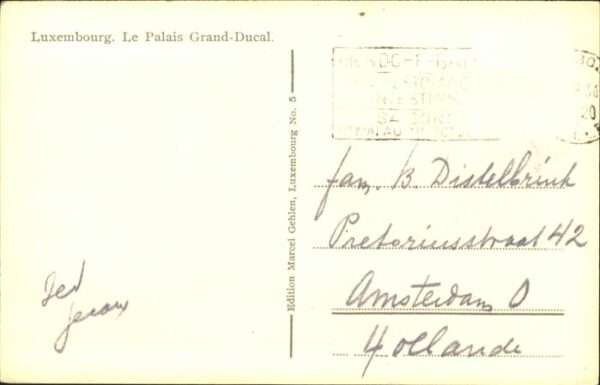 Luxembourg. Le Palais Grand-Ducal.
Edition Marcel Gehlen, Luxembourg No. 5
fam. B. Distelbrink
Pretoriusstraat 42
Amsterdam O
Hollande